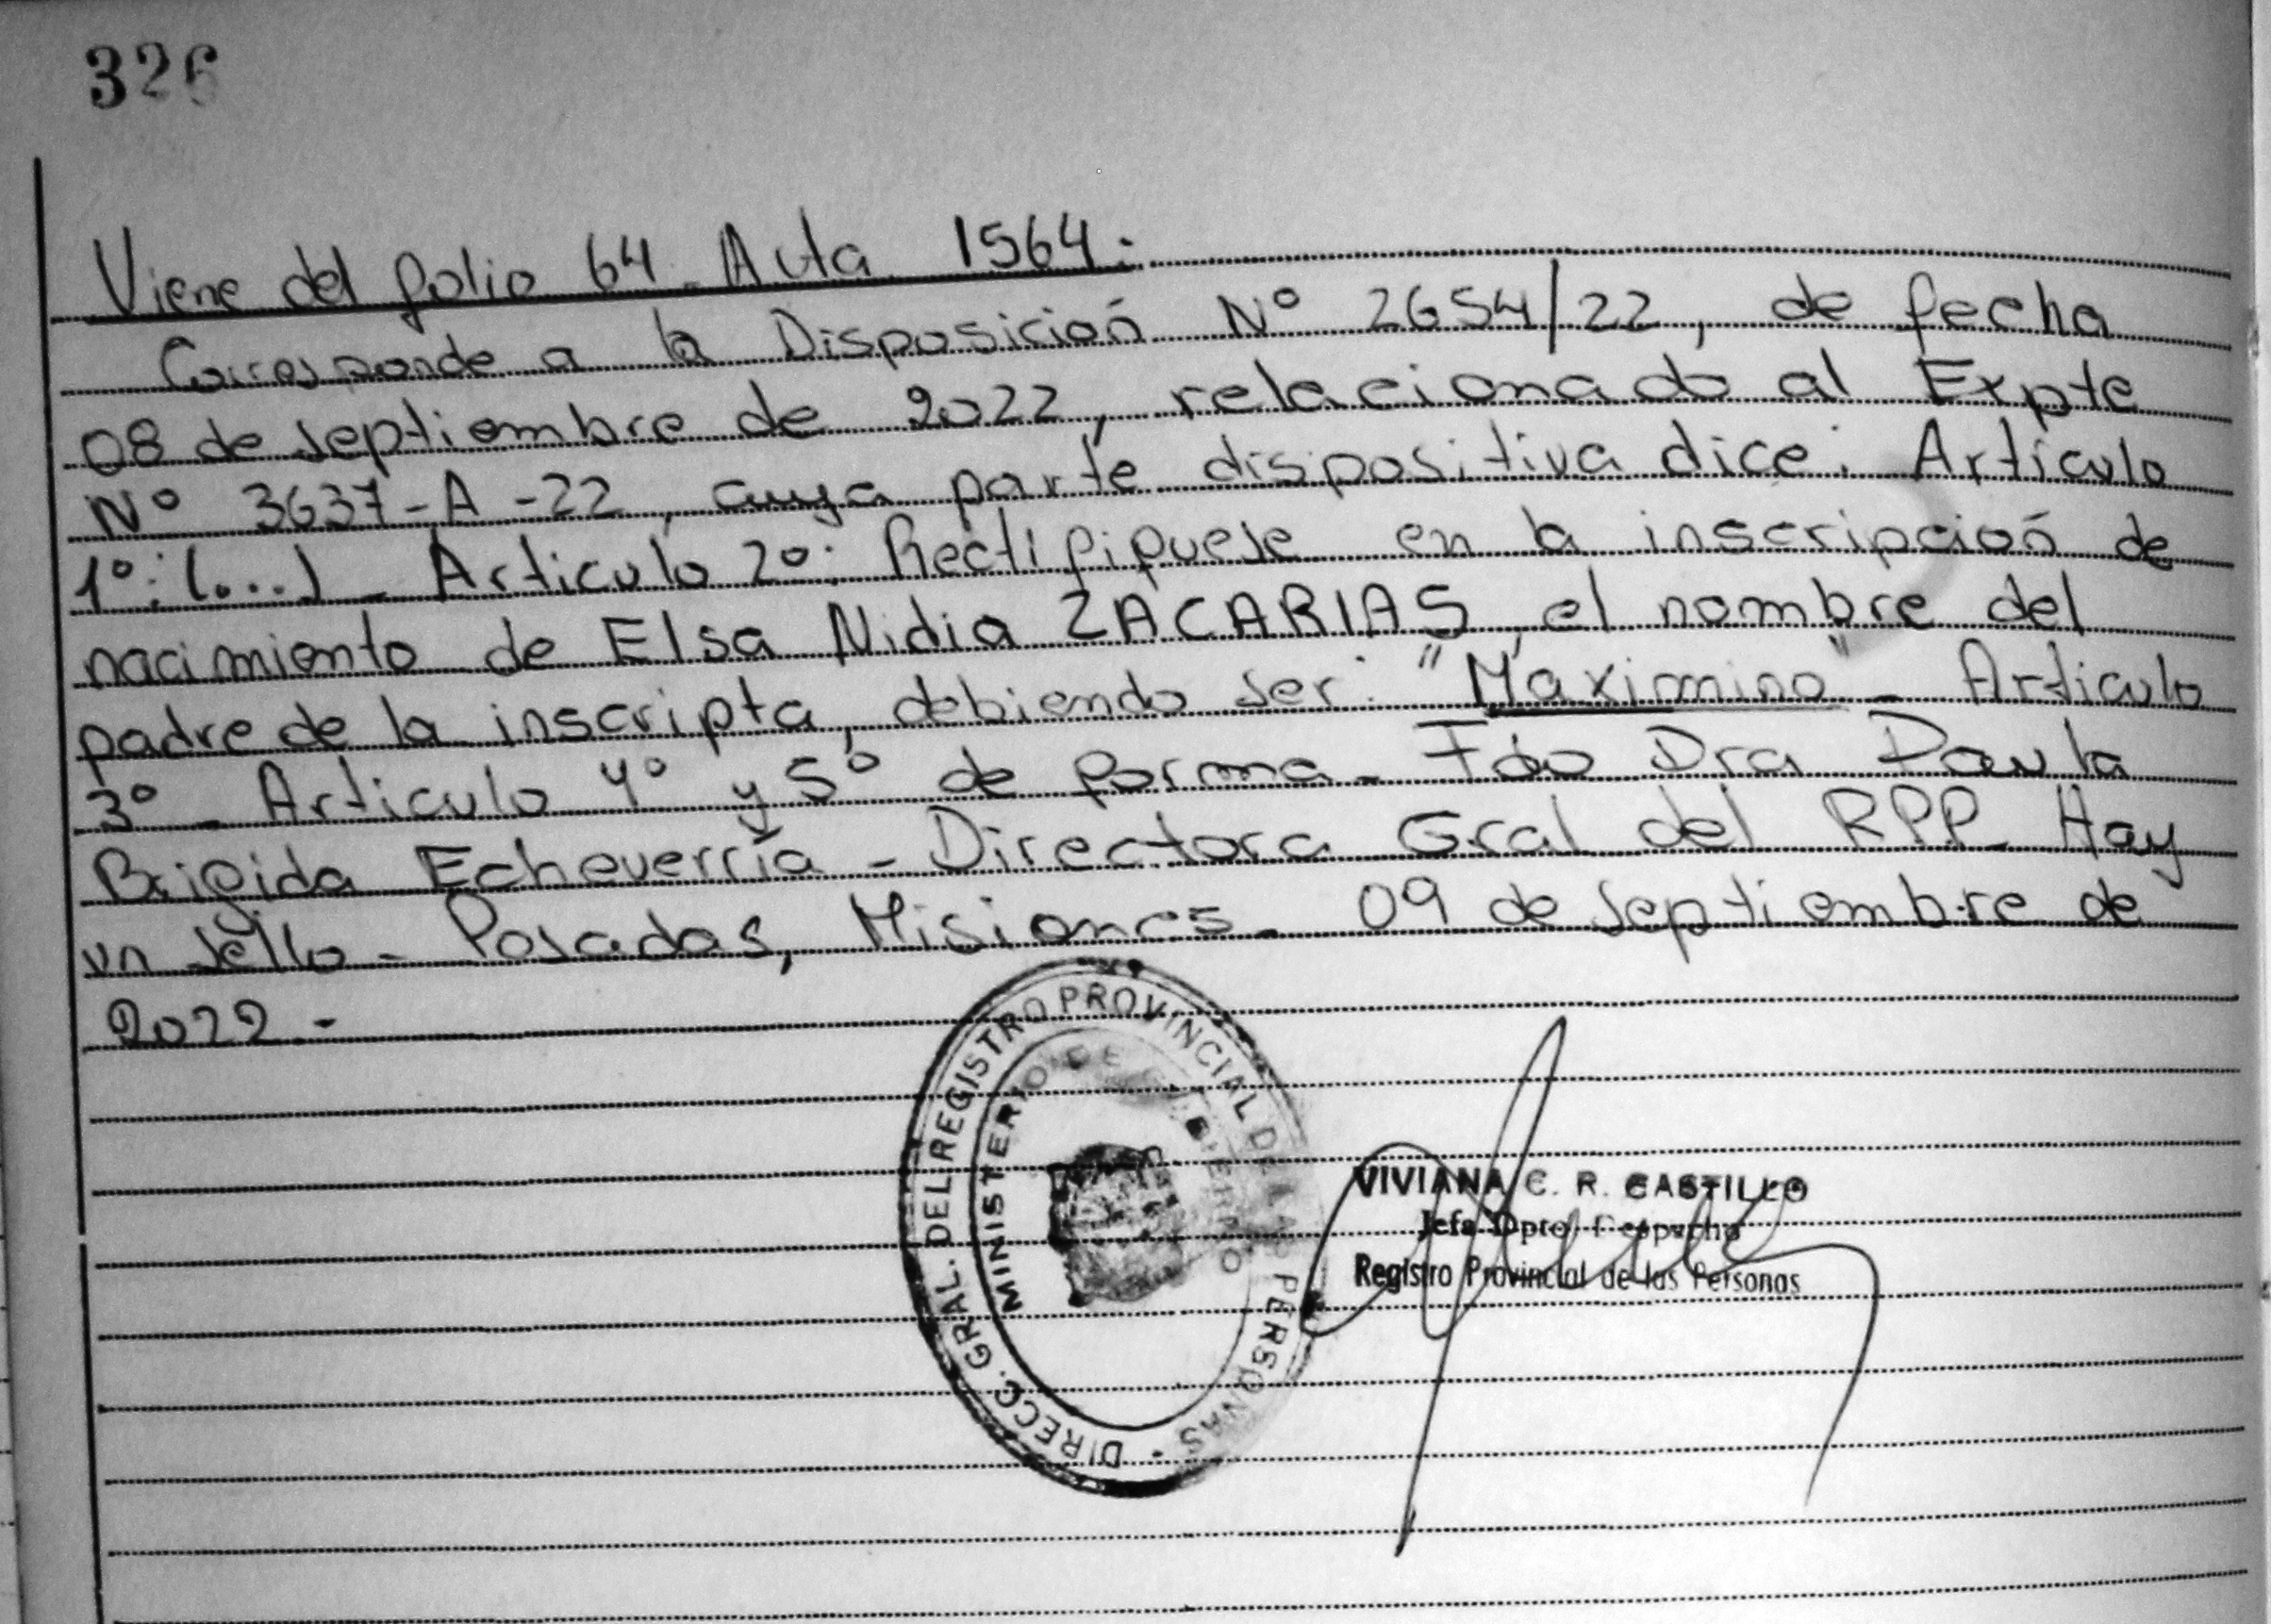 326
Viene del folio 64. Acta 1564.
Corresponde a la Disposición Nº 2654/22, de fecha
08 de septiembre de 2022, relacionado al Expte
Nº 3637-A-22, cuya parte dispositiva dice: Artículo
1º: (...) - Articulo 2º: Rectifiquese en la inscripción de
nacimiento de Elsa Nidia ZACARIAS, el nombre del
padre de la inscripta, debiendo ser: "Maximino" - Articulo
3º - Articulo 4º y 5º de forma - Fdo Dra Paula
Brigida Echeverría - Directora Gral del RPP - Hay
un sello - Posadas, Misiones - 09 de septiembre de
2022.-
DIRECC. GRAL. DEL REGISTRO PROVINCIAL DE LAS PERSONAS
MINISTERIO DE GOBIERNO
VIVIANA C. R. CASTILLO
Jefa Dpto. Despacho
Registro Provincial de las Personas